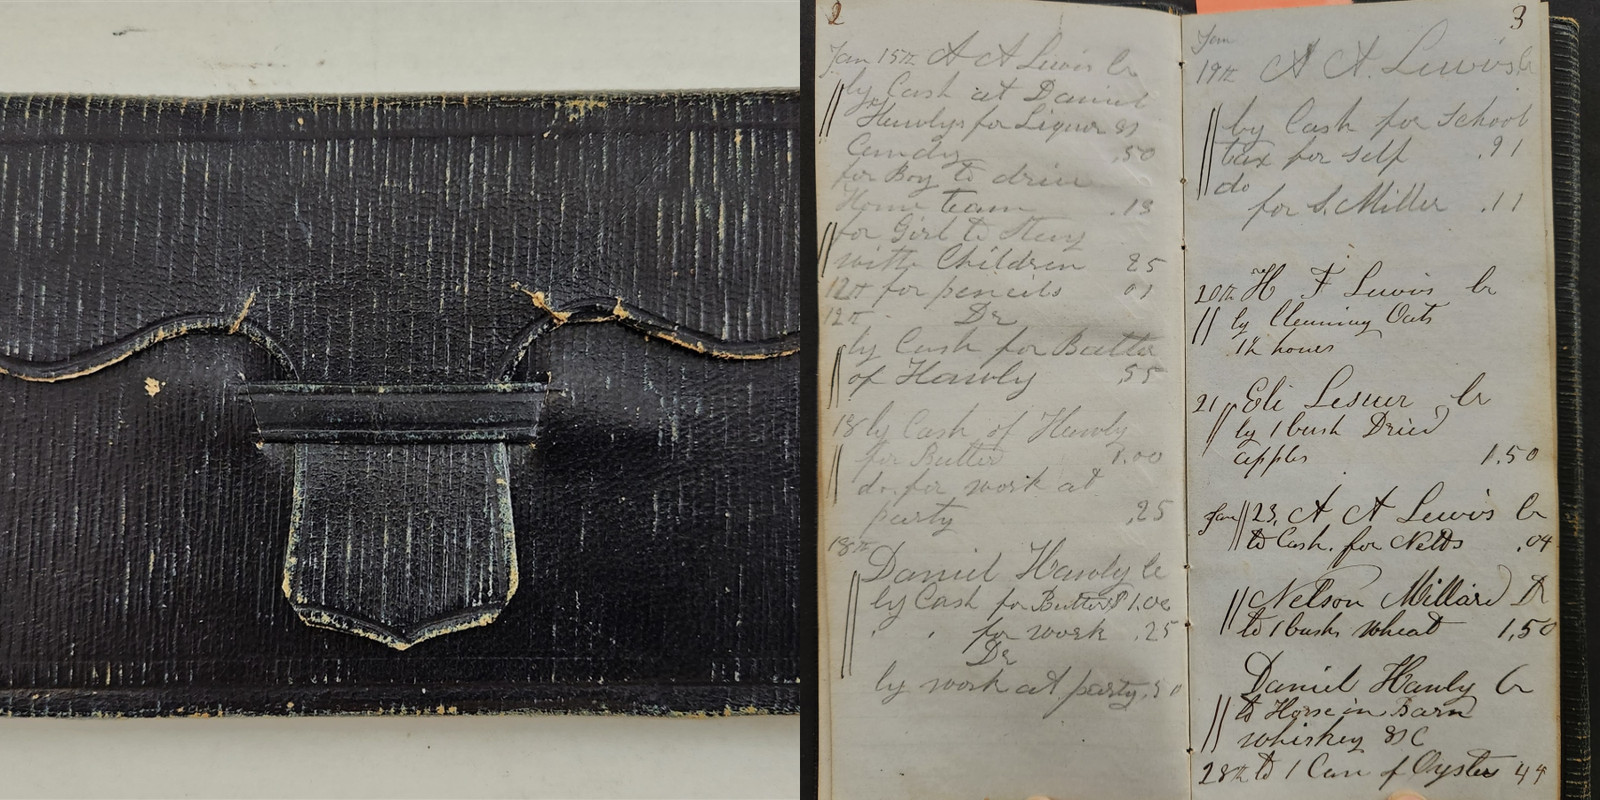 2
Jan 15th A A Lewis Cr
by Cash at Daniel
Hawlys for Liquor &
Candy .50
for Boy to drive
Home team .13
for Girl to Stay
with Children 25
12th for pencils 01
12th Dr
by Cash for Butter
of Hawly .55
18 by Cash of Hawly
for Butter 1.00
do for work at
party .25
18th
Daniel Hawly Cr
by Cash for Butter 1.00
" " for work .25
Dr
by work at party .50
3
Jan
19th A A. Lewis Cr
by Cash for School
tax for self .91
do
for S. Miller .11
20th H F Lewis Cr
by Cleaning Oats
1½ hours
21 Eli Cr
by 1 bush Dried
apples 1.50
Jan 23, A A Lewis Cr
to Cash for .04
Nelson Millard Dr
to 1 bush wheat 1,50
Daniel Hawly Cr
to Horse in Barn
whiskey &C
28th to 1 Can of Oysters 44